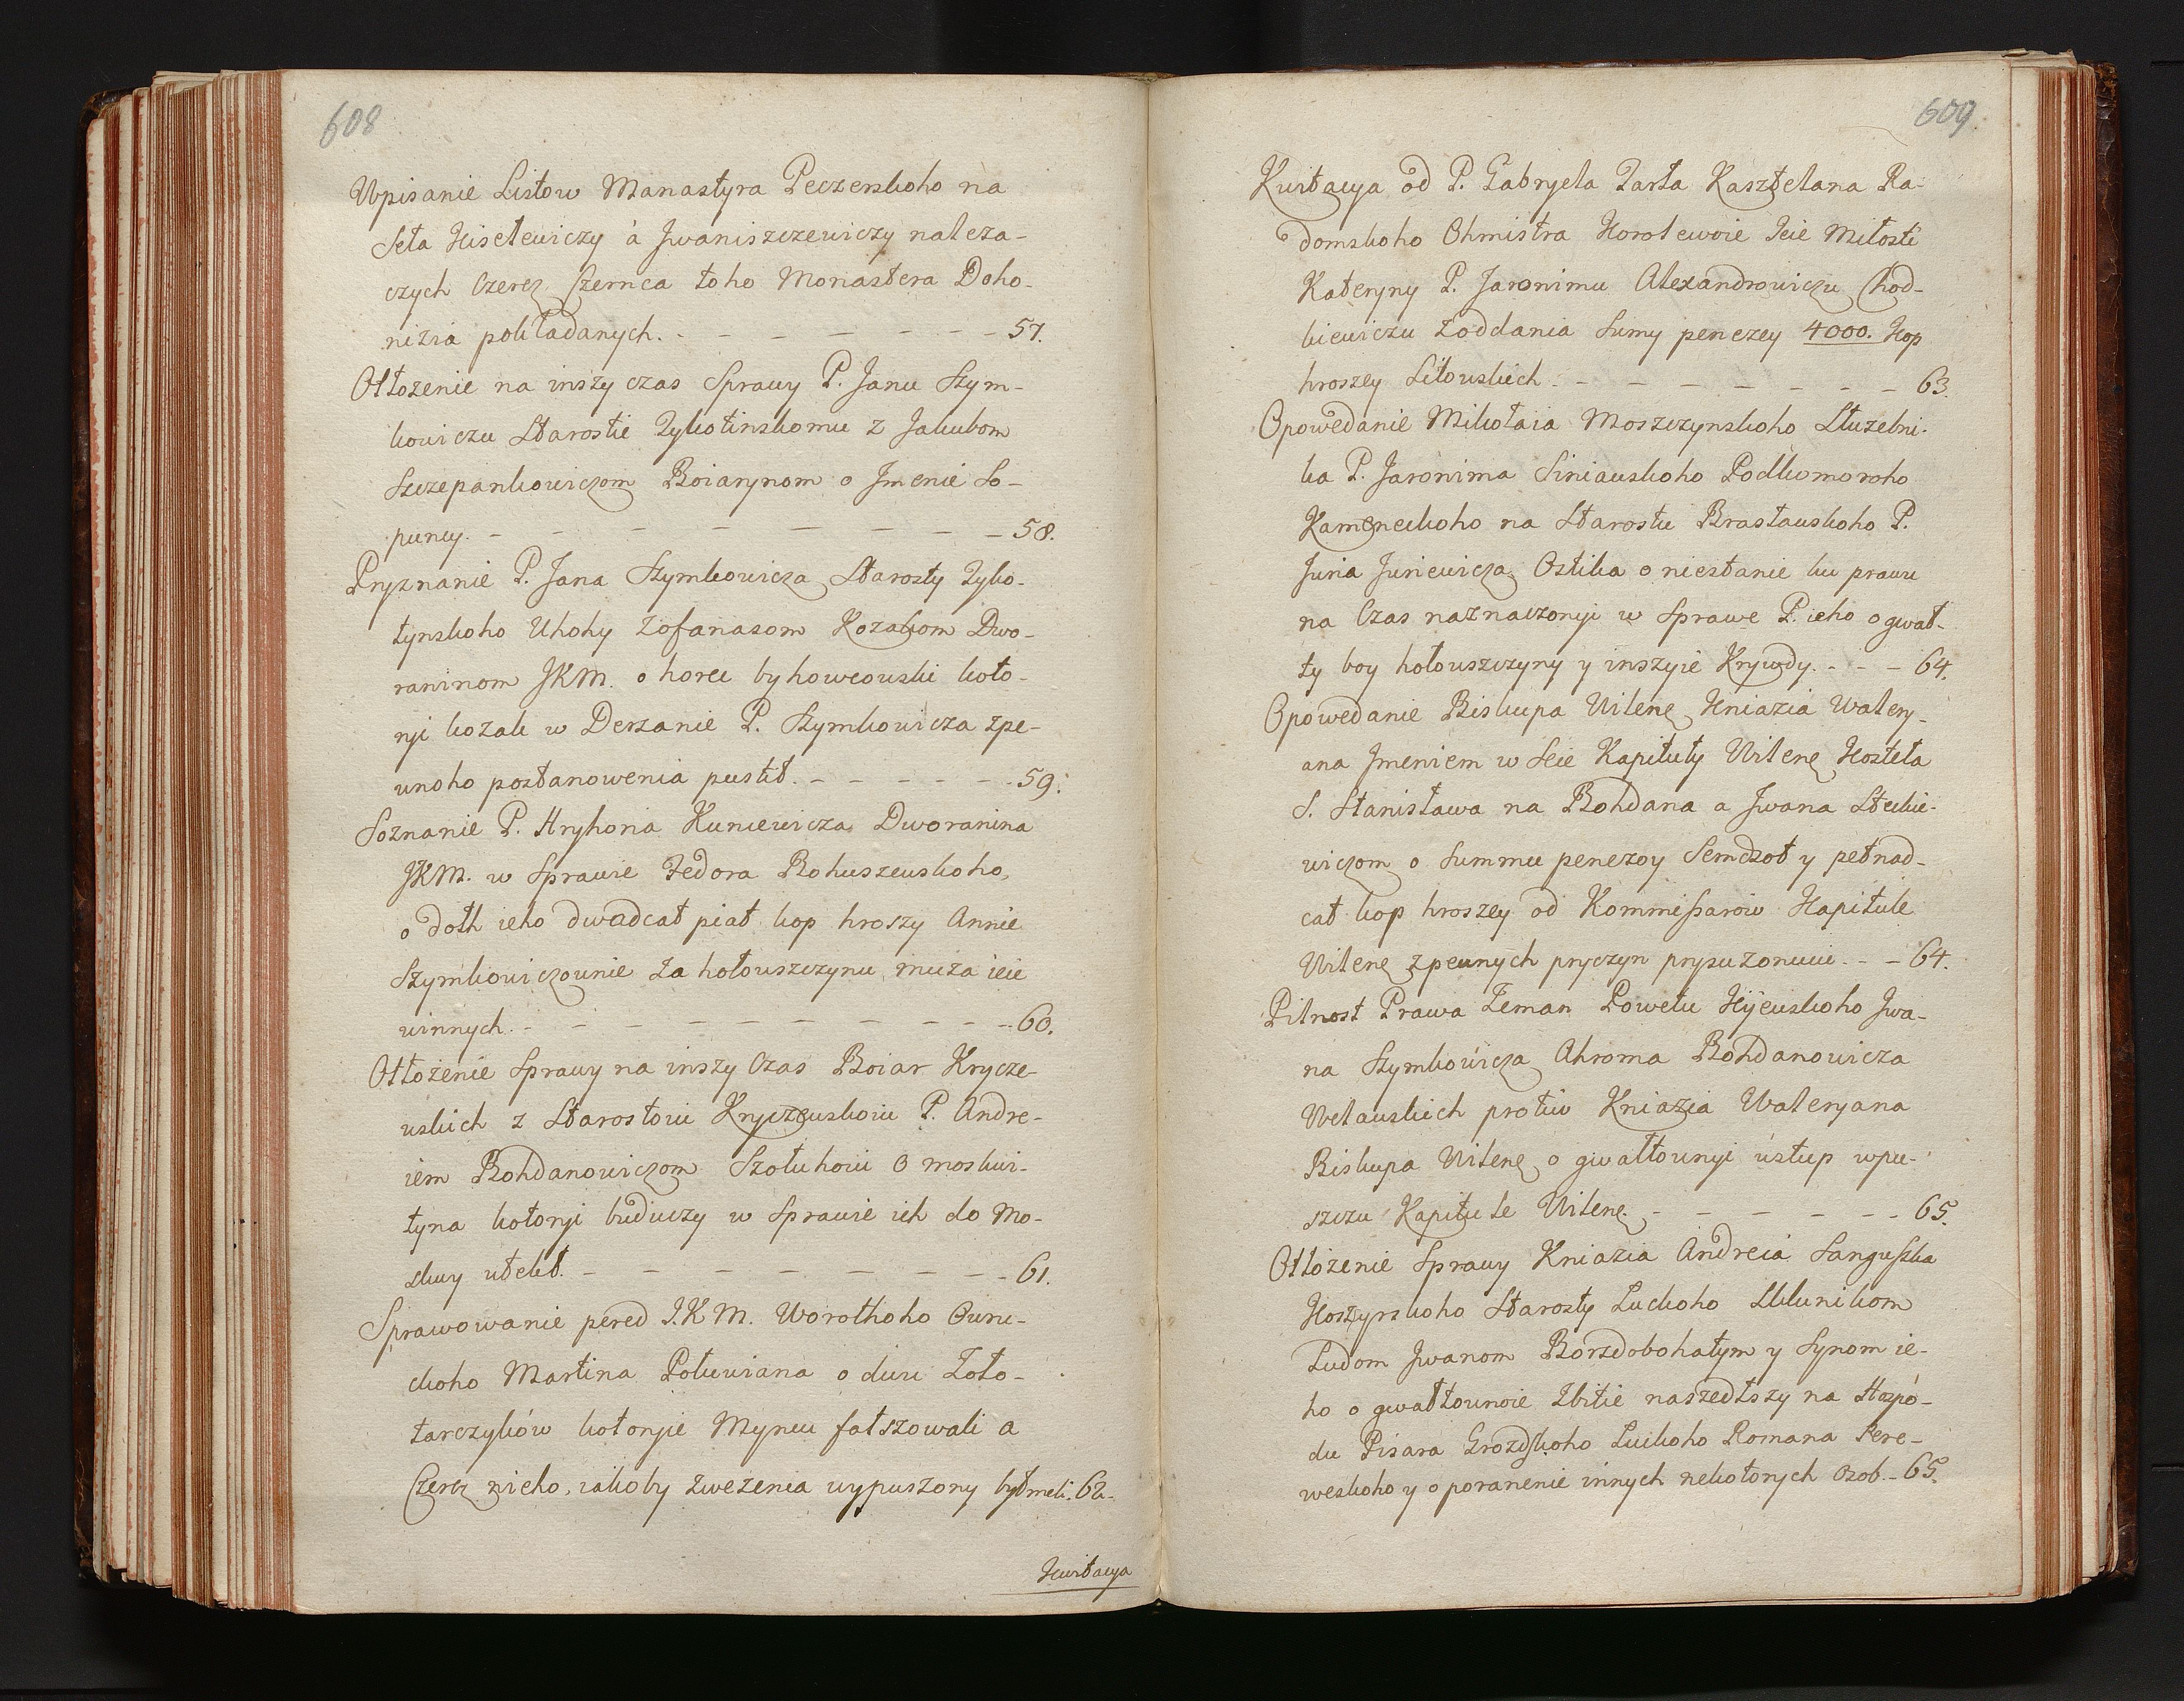 608
Wpisanie Listow Manastyra Peczerskoho na
Seła Kisełewiczy á Jwaniszczewiczy naleza-
czych Czerez Czernca toho Monastera Doho-
nizia pokładanych. - - - - - - - 57.
Otłozenie na inszy czas Sprawy P. Janu Szym-
kowiczu Starostie Tykotinskomu z Jakubom
Szczepankowiczom Boiarynom o Jmenie Ło-
puncy. - - - - - - - - 58.
Pryznanie P. Jana Szymkowicza Starosty Tyko-
tynskoho Uhohy Zofanasom Kozakom Dwo-
raninom JKM. o horeł byhowcowski koto-
ryi kozak w Derzanie P. Szymkowicza zpe-
wnoho postanowenia pustił. - - - - - - 59.
Soznanie P. Hryhoria Kuncewicza Dworanina
JKM. w Sprawie Fedora Bohuszewskoho,
o dołh ieho dwadcat piat kop hroszy Annie
Szymkowiczownie za hołowszczynu muża ieie
winnych. - - - - - - - - - - 60.
Otłożenie Sprawy na inszy Czas Boiar Krycze-
wskich z Starostoiu Kryczewskoiu P. Andre-
iem Bohdanowiczom Szołuhoiu o moskwi-
tyna kotoryi buduczy w Sprawie ich do Mo-
skwy utekł. - - - - - - - - 61.
Sprawowanie pered J.K.M. Worotkoho Owru-
ckoho Martina Połuwiana o dwu Zoło-
tarczyków kotoryie Myncu fałszowali a
Czerez nieho, iakoby zwezenia wypuszony byt meli. 62.
Kwitacya
609.
Kwitacya od P. Gabryela Tarła Kasztelana Ra-
domskoho Ohmistra Korolewoie Jeie Miłosti
Kateryny P. Jaronimu Alexandrowiczu Chod-
kiewiczu Zoddania Sumy penezey 4000. Kop
hroszey Litowskich. - - - - - - - - 63.
Opowedanie Mikołaia Moszczynskoho Służebni-
ka P. Jaronima Siniawskoho Podkomoroho
Kameneckoho na Starostu Brasławskoho P.
Juria Juriewicza Ostika o niestanie ku prawu
na Czas naznaczonyi w Sprawe P. ieho o gwał-
ty boy hołowszczyny y inszyie Krywdy. - - - 64.
Opowedanie Biskupa Wilene Kniazia Walery-
ana Jmeniem w Seie Kapituły Wilene Kosteła
S. Stanisława na Bohdana a Jwana Steckie-
wiczom o Summu penezoy Semdsot y petnad-
cat kop hroszey od Kommissarow Kapitule
Wilene zpewnych pryczyn prysuzonuiu. - - 64.
Pilnost Prawa Zeman Powetu Kijewskoho Jwa-
na Szymkowicza Ahroma Bohdanowicza
Welawskich protiw Kniazia Waleryana
Biskupa Wilene o gwałtownyi ustup wpu-
szczu Kapitule Wilene. - - - - - - - 65.
Otłożenie Sprawy Kniazia Andreia Sanguszka
Koszyrskoho Starosty Luckoho Skłunikom
Ludom Jwanom Borzdobohatym y Synom ie-
ho o gwałtownoie Zbitie naszedłszy na Hospo-
du Pisara Grodskoho Luckoho Romana Pere-
weskoho y o poranenie innych nekotorych Osob. - 65.